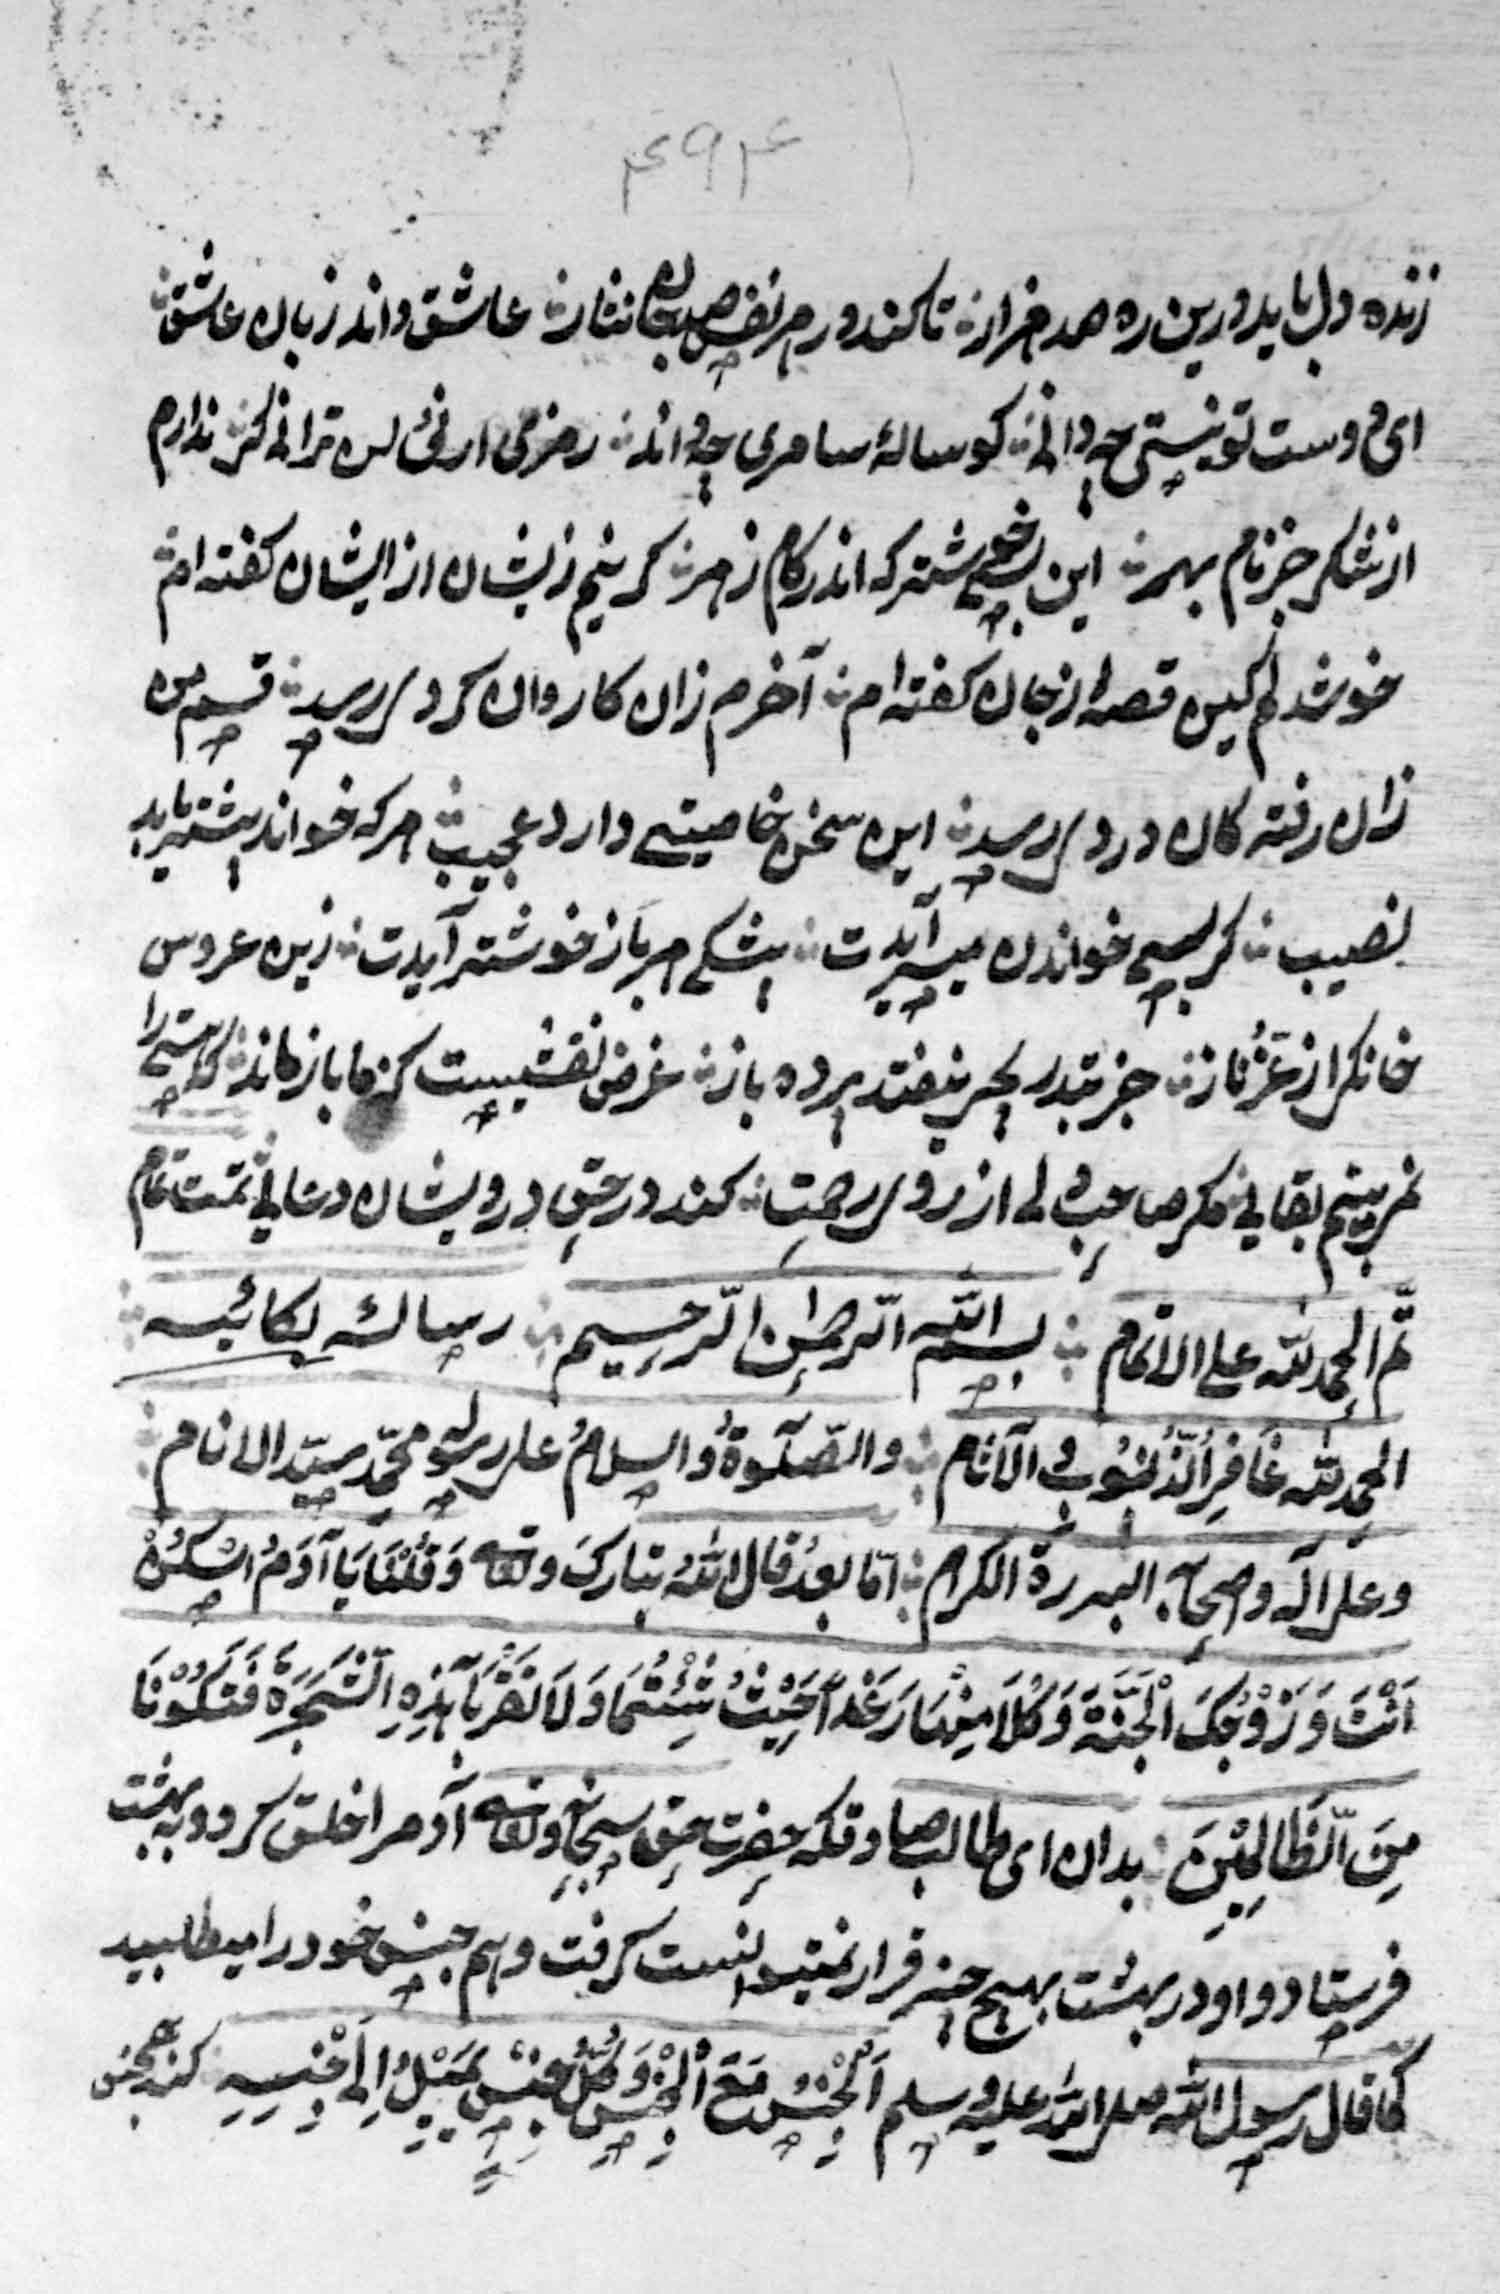 ۴۹۴
زنده دل باید درین ره صد هزار ∴ تا کند در هر نفس صد جان نثار ∴ عاشق داند زبان عاشق ∴
ای دوست تو نیستی چه دانی ∴ کوسالهٔ سامری چه داند ∴ رمز ارنی لن ترانی کر ندارم
از شکر جز نام بهر ∴ این بسی خوشتر که اندر کام زهر ∴ کر نیم زیشان از ایشان کفته ام
خوشدلم کین قصه از جان کفته ام ∴ آخرم زان کاروان کردی رسید ∴ قسم من
زان رفته کان دردی رسید ∴ این سخن خاصیتے دارد عجیب ∴ هر که خواند بیشتر یابد
نصیب ∴ کر بسی خواندن میسر آیدت ∴ بیشکی هر باز خوشتر آیدت ∴ زین عروس
خانکی از عز ناز ∴ جز بتدریج نیفتد پرده باز ∴ غرض نقشیست کز ما باز ماند ∴ که هستی را
نمی بینم بقائی مکر صاحب دلی از روی رحمت ∴ کند در حق درویشان دعائی تمت تمام
تم الحمد لله علی الاتمام ∴ بسم الله الرحمن الرحیم ∴ رساله بکائیه ∴
الحمد لله غافر الذنوب والآثام ∴ والصلوة والسلام علی رسوله محمد سید الانام ∴
وعلی آله وصحابه البررة الکرام ∴ اما بعد قال الله تبارک وتعالی وَقُلْنَا یَا آدَمُ اسْکُنْ
اَنْتَ وَزَوْجُکَ الْجَنَّةَ وَکُلَا مِنْهَا رَغَدًا حَیْثُ شِئْتُمَا وَلَا تَقْرَبَا هٰذِهِ الشَّجَرَةَ فَتَکُوْنَا
مِنَ الظَّالِمِیْنَ ∴ بدان ای طالب صادق که حضرت حق سبحانه وتعالی آدم را خلق کرد و به بهشت
فرستاد و او در بهشت بهیچ چیز قرار نمیتوانست کرفت و هم جنس خود را میطلبید
کما قال رسول الله صلی الله علیه وسلم اَلْجِنْسُ مَعَ الْجِنْسِ وَکُلُّ جِنْسٍ یَمِیْلُ اِلٰی جِنْسِهِ کند همجنس